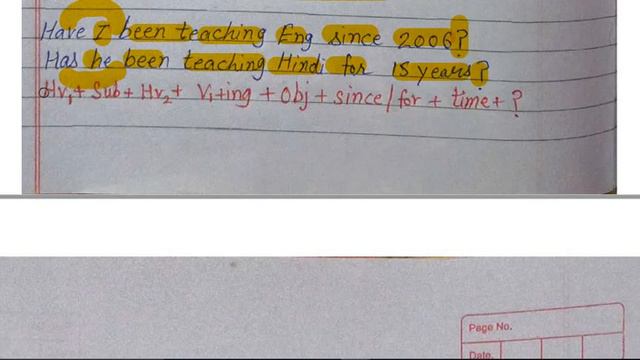 Have I been teaching Eng since 2006?
Has he been teaching Hindi for 15 years?
Hv1 + Sub + Hv2 + V1+ing + Obj + since/for + time + ?
Page No.
Date